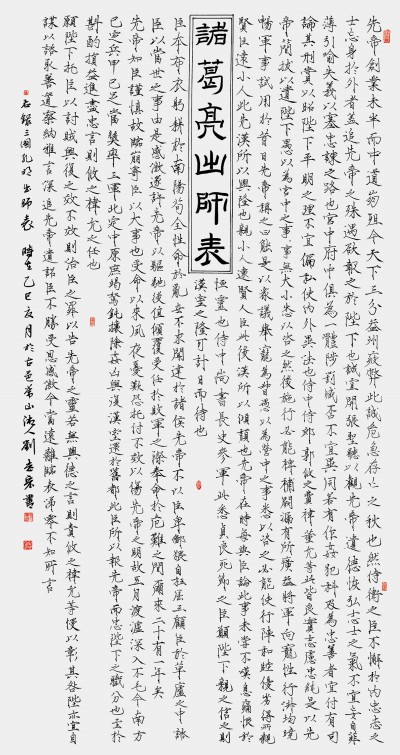 諸葛亮出師表
先帝創業未半而中道崩殂今天下三分益州疲弊此誠危急存亡之秋也然侍衛之臣不懈於內忠志之
士忘身於外者蓋追先帝之殊遇欲報之於陛下也誠宜開張聖聽以光先帝遺德恢弘志士之氣不宜妄自菲
薄引喻失義以塞忠諫之路也宮中府中俱為一體陟罰臧否不宜異同若有作姦犯科及為忠善者宜付有司
論其刑賞以昭陛下平明之理不宜偏私使內外異法也侍中侍郎郭攸之費禕董允等此皆良實志慮忠純是以先
帝簡拔以遺陛下愚以為宮中之事事無大小悉以咨之然後施行必能裨補闕漏有所廣益將軍向寵性行淑均曉
暢軍事試用於昔日先帝稱之曰能是以眾議舉寵為督愚以為營中之事悉以咨之必能使行陣和睦優劣得所親
賢臣遠小人此先漢所以興隆也親小人遠賢人此後漢所以傾頹也先帝在時每與臣論此事未嘗不歎息痛恨於
恒靈也侍中尚書長史參軍此悉貞良死節之臣願陛下親之信之則
漢室之隆可計日而待也
臣本布衣躬耕於南陽苟全性命於亂世不求聞達於諸侯先帝不以臣卑鄙猥自枉屈三顧臣於草廬之中諮
臣以當世之事由是感激遂許先帝以驅馳後值傾覆受任於敗軍之際奉命於危難之間爾來二十有一年矣
先帝知臣謹慎故臨崩寄臣以大事也受命以來夙夜憂歎恐托付不效以傷先帝之明故五月渡瀘深入不毛今南方
已定兵甲已足當獎率三軍北定中原庶竭駑鈍攘除姦凶興復漢室還於舊都此臣所以報先帝而忠陛下之職分也至於
斟酌損益進盡忠言則攸之禕允之任也
願陛下托臣以討賊興復之效不效則治臣之罪以告先帝之靈若無興德之言則責攸之禕允等慢以彰其咎陛下亦宜自
謀以諮諏善道察納雅言深追先帝遺詔臣不勝受恩感激今當遠離臨表涕零不知所言
右錄三國孔明出師表 時在乙巳亥月於古邑